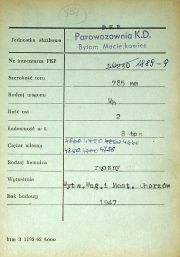 P K P
Jednostka służbowa
Parowozownia K.D.
Bytom Maciejkowice
Nr inwentarza PKP
1889-9
Szerokość toru
785 mm
Rodzaj wagonu
Wh
Ilość osi
2
Ładowność w t.
8 ton
Ciężar własny
Rodzaj hamulca
ręczny
Wytwórnia
Wytw.Wag.i Most. Chorzów
Rok budowy
1947